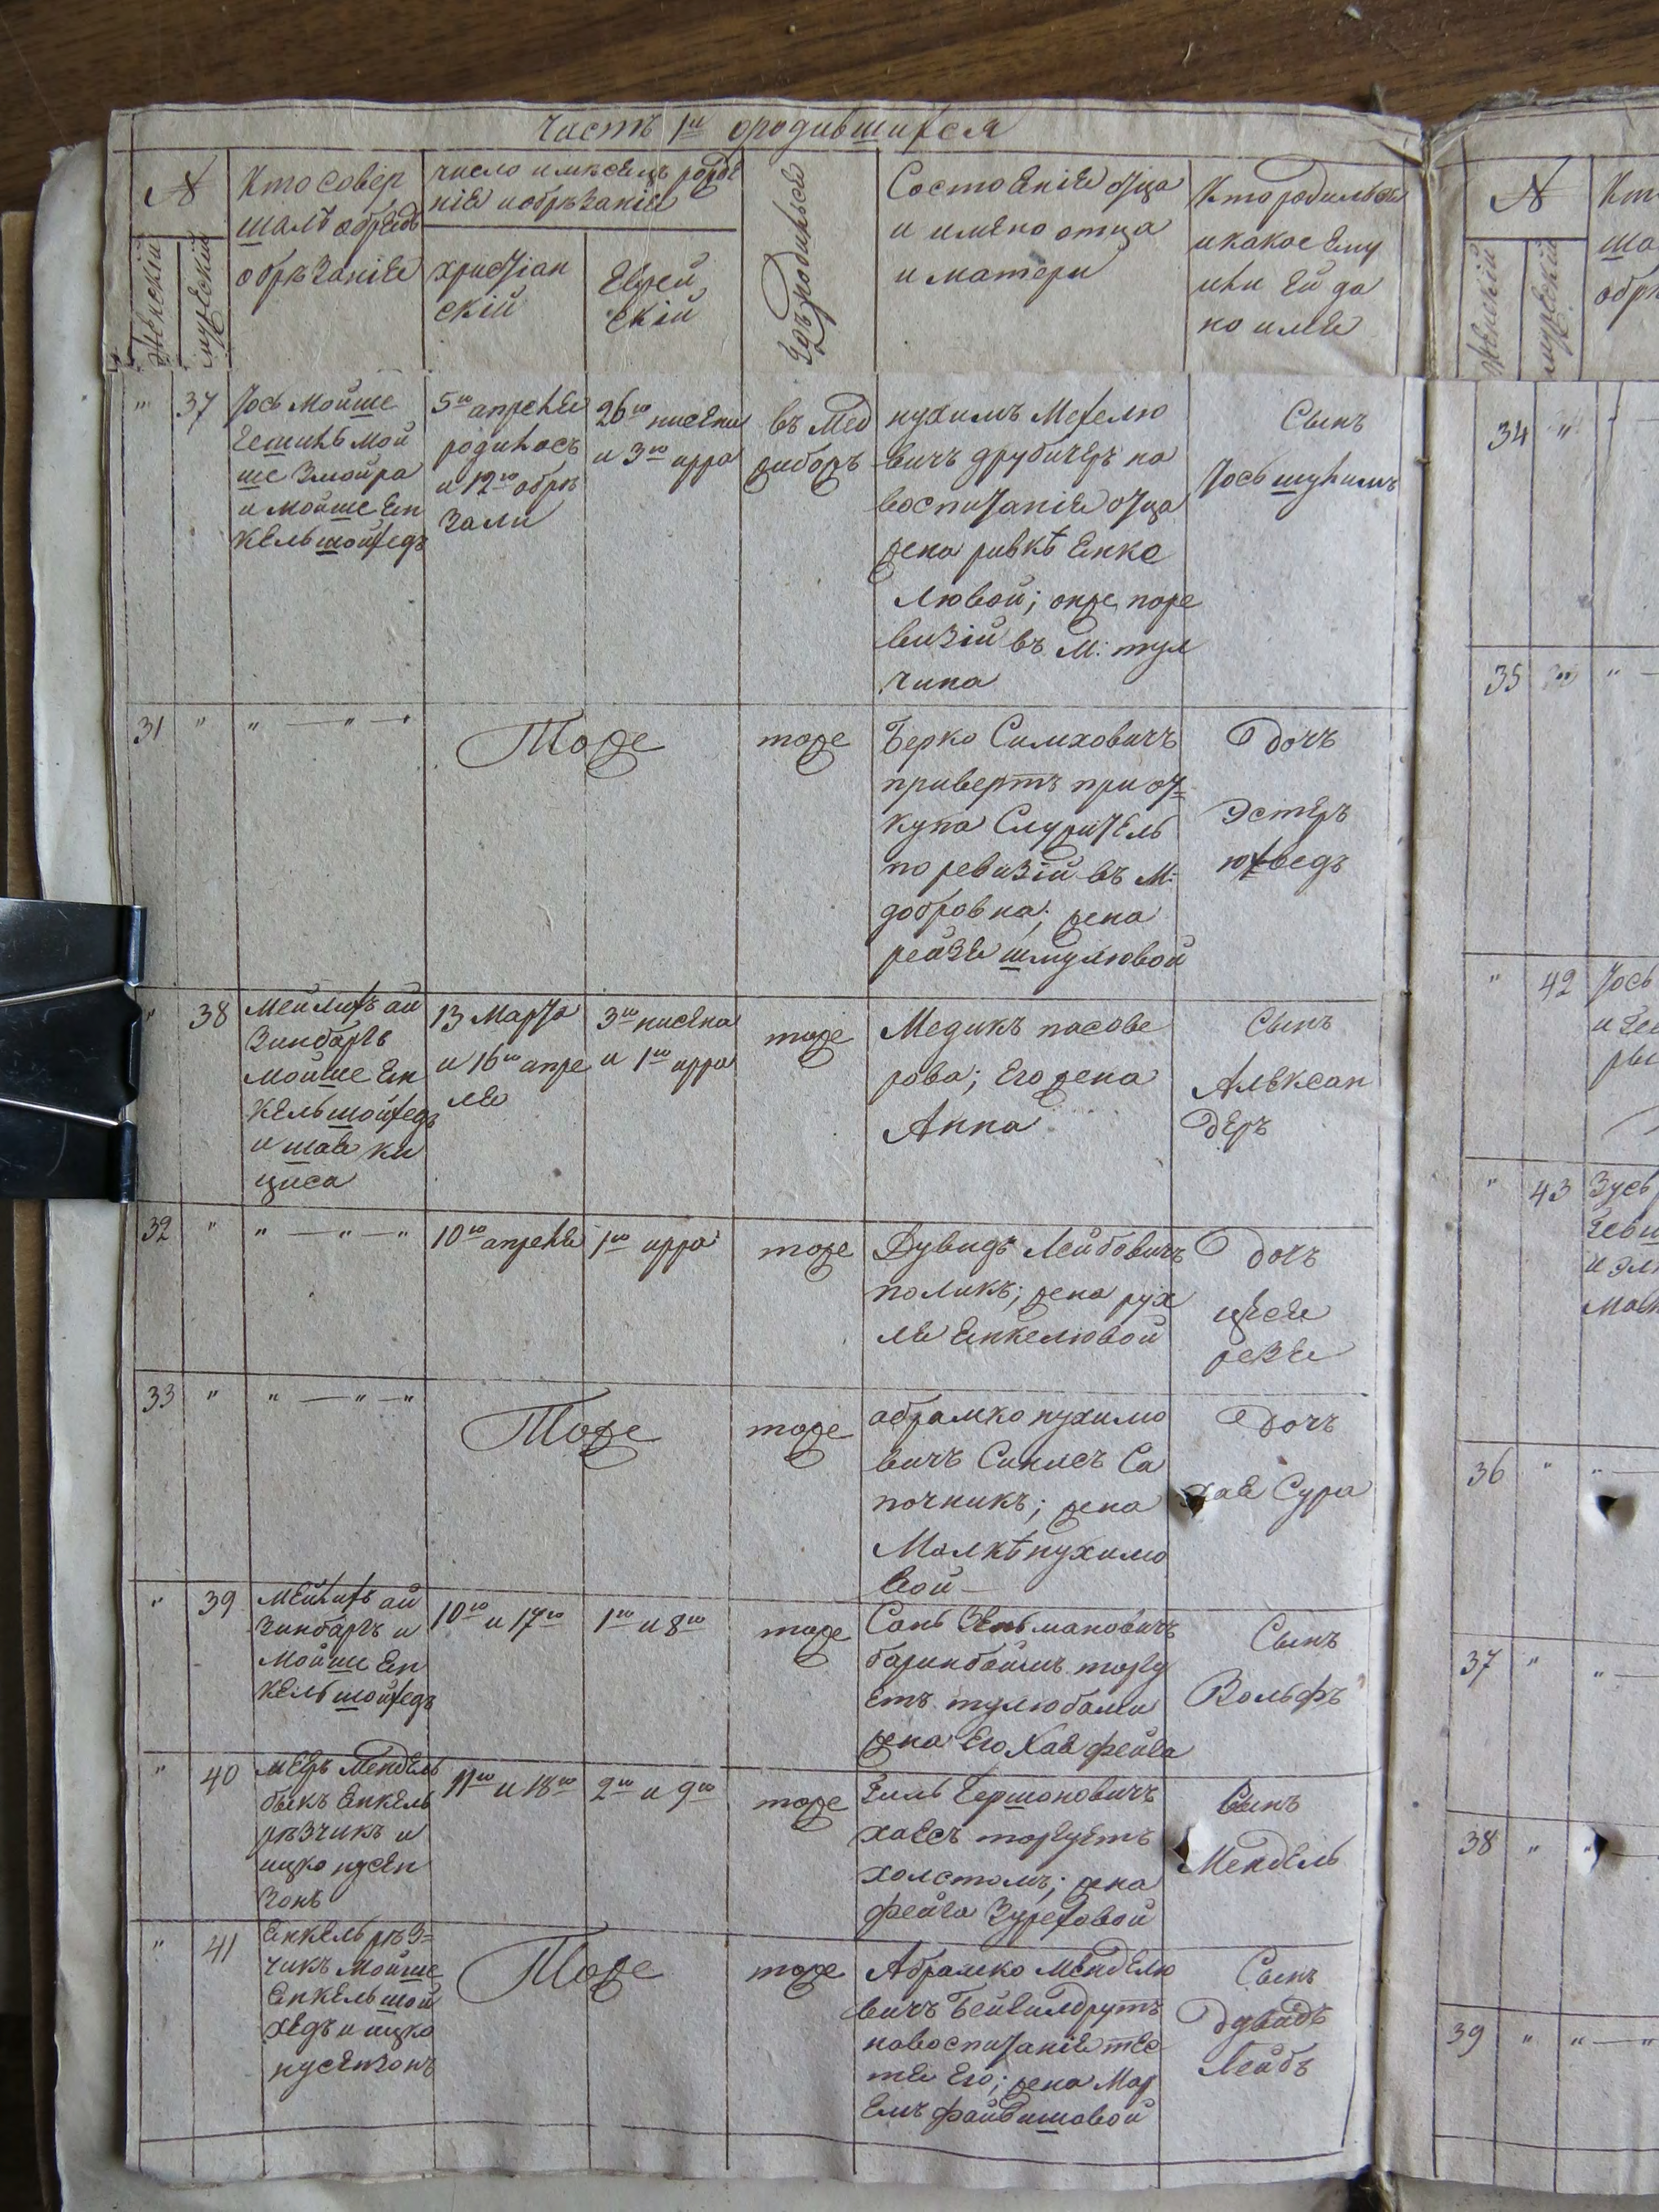 Часть 1я ородившихся
№
Женскій
мужескій
Кто совер
шалъ обрядъ
обрѣзаніе
число имѣсецъ рожде
нія иобрѣзанія
христіан
скій
Еврей
скій
Гдѣ родилься
Состоеніе отца
и имено отца
и матери
Кто родильсе
икакое Ему
или Ей да
но имя
" 37
Іось Мойше
Гешиль Мой
ше Змойра
и Мойше Ен
кель шойхедъ
5го апреля
родилось
и 12го обрѣ
зали
26го нисена
и 3го ирра
въ Мед
жибожъ
нухимъ Мехелю
вичъ друбичеръ на
воспитаніе отца
жена ривкѣ Енке
любой; онже поре
визіи въ М: тул
чина
Сынъ
Іось шулимъ
31 "
" — " — "
Тоже
тоже
Берко Симховичъ
привертъ при от=
купа Служитель
по ревизіи въ М:
добровна; жена
рейзе шмулювой
Дочъ
Эстеръ
юхведъ
" 38
Мейлихъ ай
зинбаргъ
Мойше Ен
кель шойхедъ
и шае ки
циса
13 Марта
и 16го апре
ля
3го нисена
и 1го ирра
тоже
Медикъ насове
рова; Его жена
Анна
Сынъ
Алексан
деръ
32 "
" — " — "
10го апреля
1го ирра
тоже
Дувидъ Лейбовичъ
поликъ; жена рух
ле Енкелювой
Дочъ
цѣсе
резе
33 "
" — " — "
Тоже
тоже
абрамко нухимо
вичъ Синлсъ Са
почникъ; жена
Малкѣ нухимо
вой —
Дочъ
хае Сура
" 39
Мейлихъ ай
зинбаргъ и
Мойше Ен
кель шойхедъ
10го и 17го
1го и 8го
тоже
Сань Зельмановичъ
баринбоймъ торгу
етъ тулюбами
жена Его Хае фейга
Сынъ
Вольфъ
" 40
меръ Мендель
быкъ Енкель
рѣзчикъ и
ицко нусен
зонъ
11го и 18го
2го и 9го
тоже
Гиль Гершоновичъ
хаесъ торгуетъ
холстомъ; жена
фейга Зурехавой
Сынъ
Мендель
" 41
Енкель рѣз=
чикъ Мойше
Енкель шой
хедъ и ицко
нусензонъ
Тоже
тоже
Абрамко Менделю
вичъ Бейгилдрутъ
навоспитаніе тес
тя Его; жена Мар
емъ файвишовой
Сынъ
Дувидъ
Лейбъ
№
Женскій
мужескій
Кто
ша
обрѣ
34 "
35 "
" 42
Іось
и Ге
ры
" 43
Зусь
Гевш
и эл
36 "
37 "
38 "
39 "
" — "